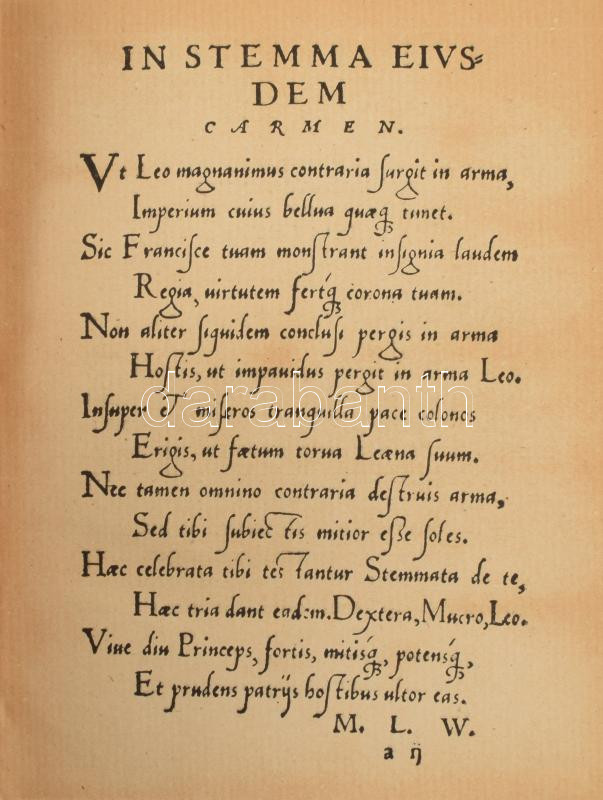 IN STEMMA EIVS=
DEM
CARMEN.
Vt Leo magnanimus contraria surgit in arma,
Imperium cuius bellua quæq; timet.
Sic Francisce tuam monstrant insignia laudem
Regia, uirtutem fertq́; corona tuam.
Non aliter siquidem conclusi pergis in arma
Hostis, ut impauidus pergit in arma Leo.
Insuper et miseros tranquilla pace colonos
Erigis, ut fætum torua Leæna suum.
Nec tamen omnino contraria destruis arma,
Sed tibi subiectis mitior esse soles.
Hæc celebrata tibi testantur Stemmata de te,
Hæc tria dant eadem. Dextera, Mucro, Leo.
Viue diu Princeps, fortis, mitisq́;, potensq́;,
Et prudens patrijs hostibus ultor eas.
M. L. W.
a ij
darabanth